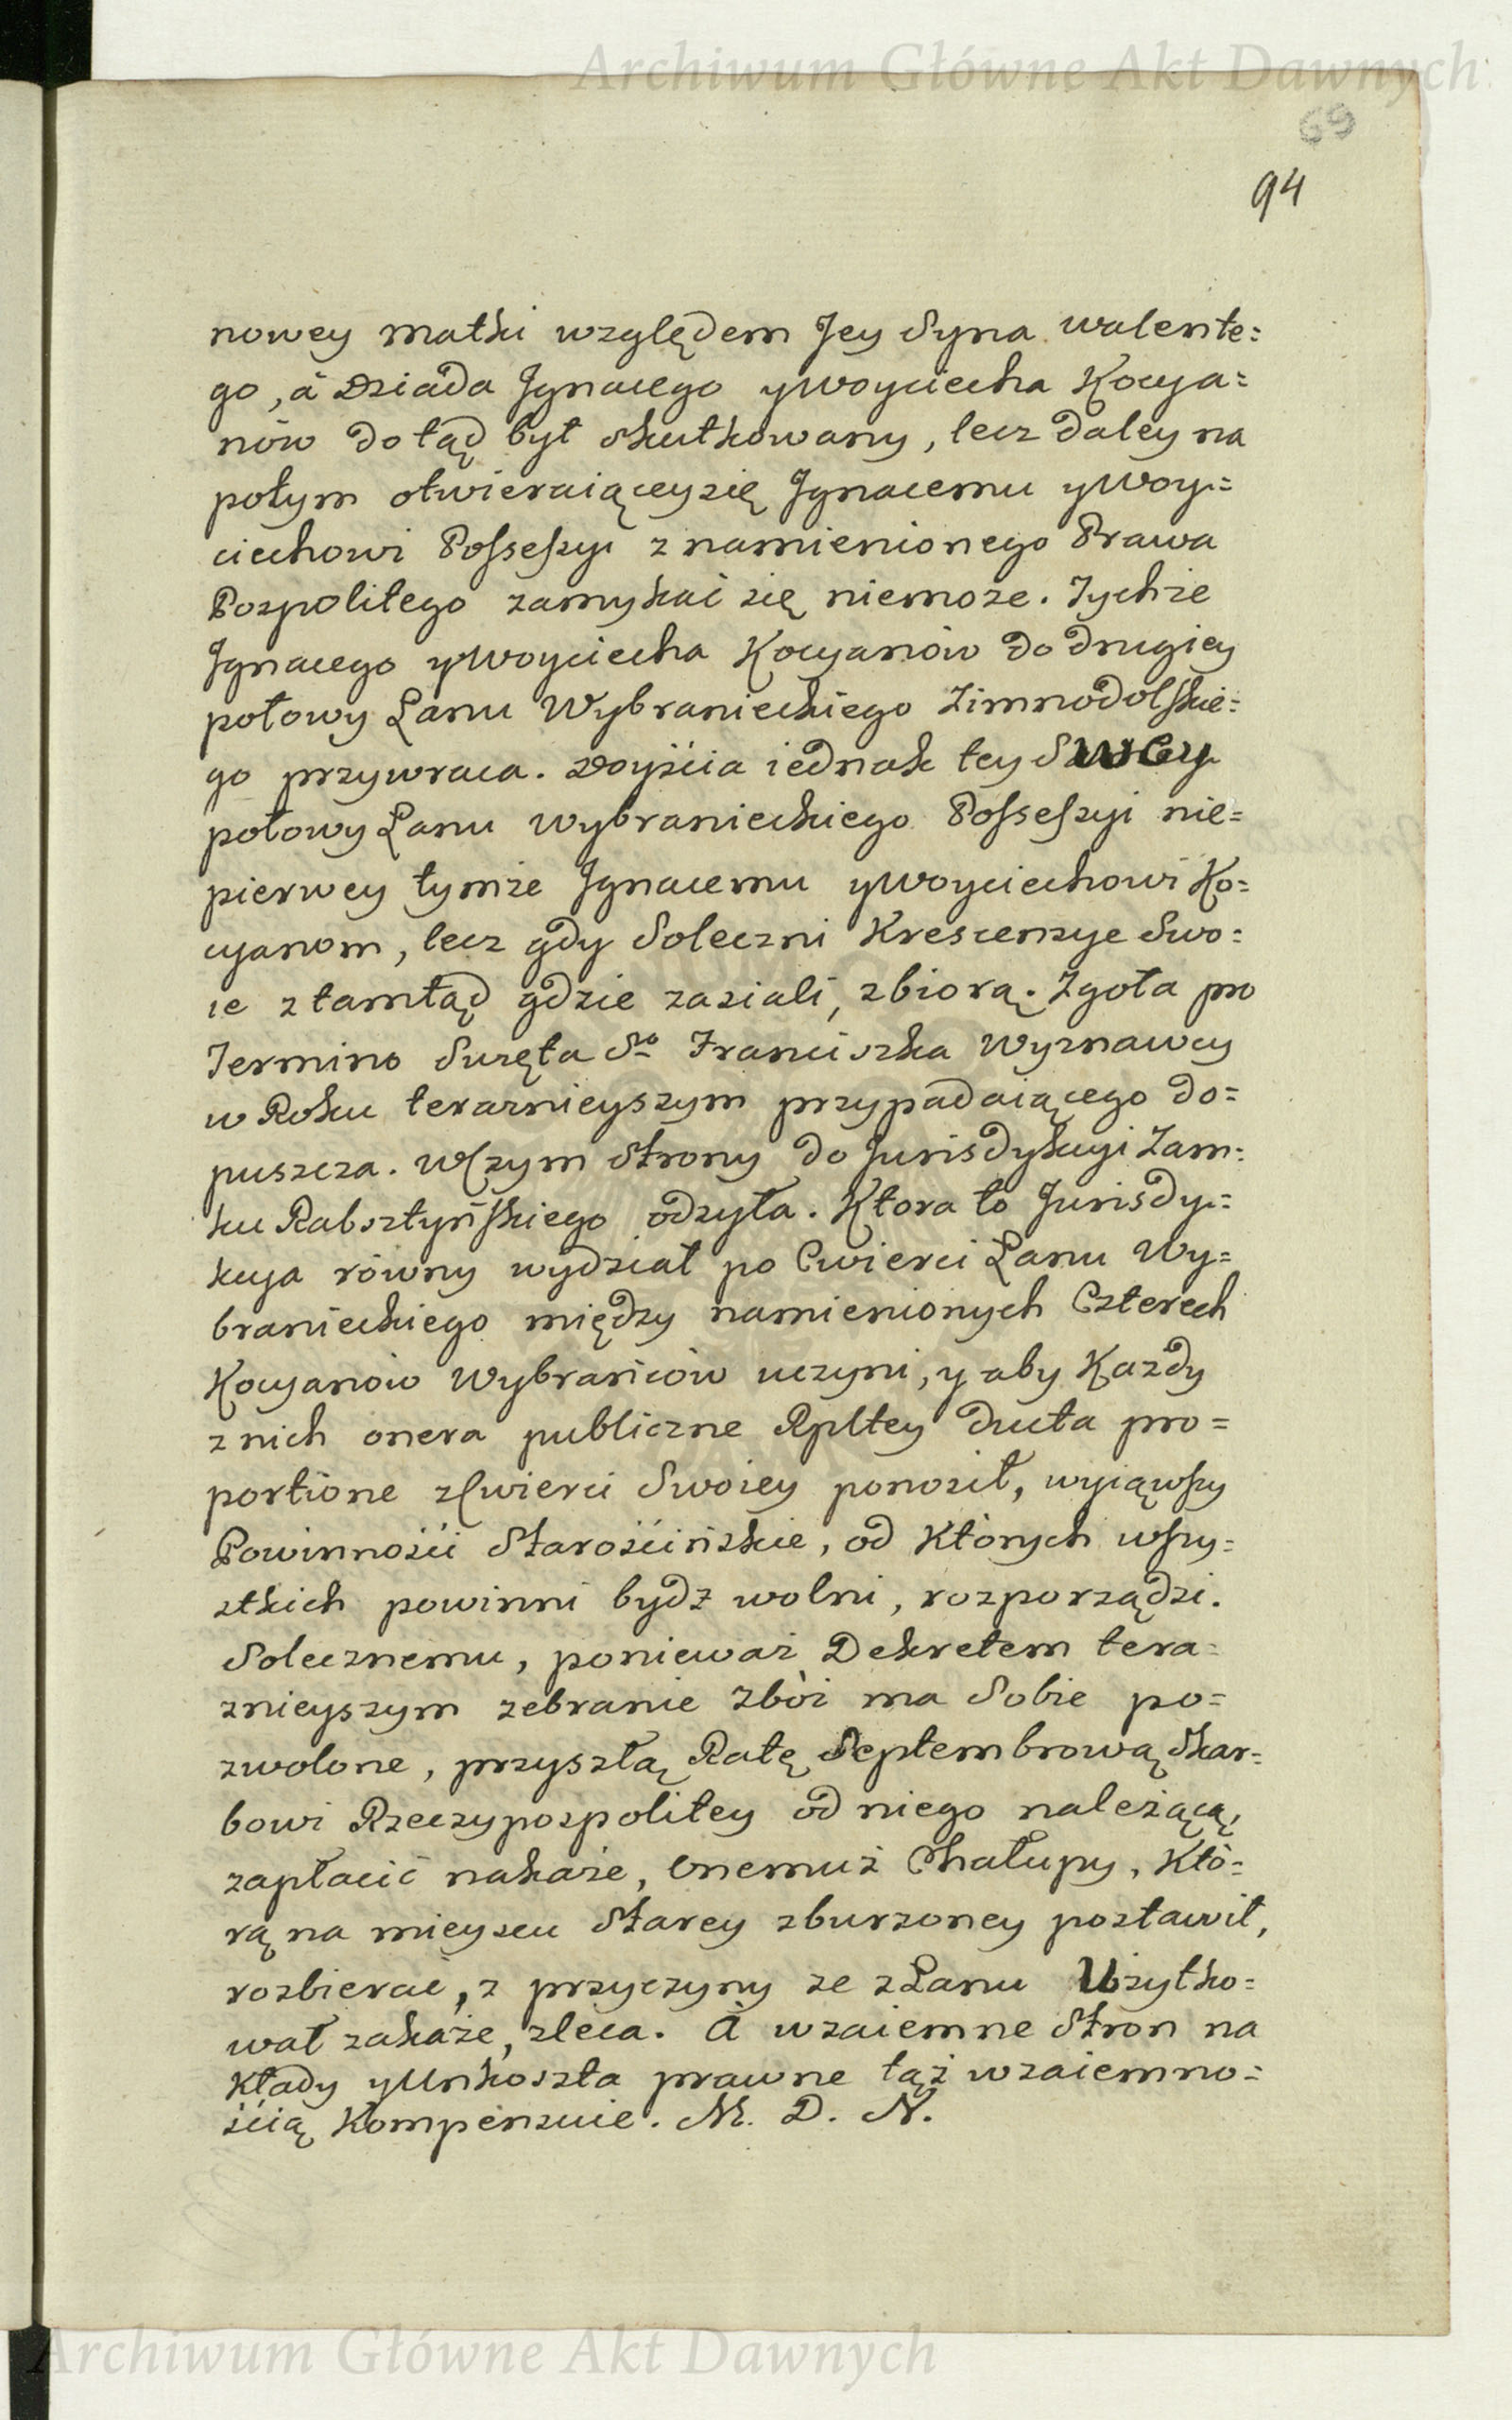 Archiwum Główne Akt Dawnych
69
94
nowey matki względem Jey Syna walente=
go, á Dziáda Jgnacego y Woyciecha Kocya=
nów do tąd był skutkowany, lecz daley na
potym otwieraiącey się Jgnacemu y Woy=
ciechowi Possessyi z namienionego Prawa
Pospolitego zamykać się niemoze. Tychże
Jgnacego y Woyciecha Kocyanów do drugiey
połowy Łanu Wybranieckiego Zimnodolskie=
go przywraca. Doyścia iednak tey
połowy Łanu wybranieckiego Possessyi nie=
pierwey tymże Jgnacemu y Woyciechowi Ko=
cyanom, lecz gdy Soleczni Krescensye Swo=
ie z tamtąd gdzie zasiali, zbiorą. Zgoła pro
Termino Swięta So Franciszka Wyznawcy
w Roku terazniejszym przypadaiącego do=
puszcza. W czym Strony do Jurisdykcyi Zam=
ku Rabsztyńskiego odsyła. Ktora to Jurisdy=
kcya równy wydział po Cwierci Łanu Wy=
branieckiego między namienionych Czterech
Kocyanów Wybrańców uczyni, y aby Kazdy
z nich onera publiczne Rpltey ducta pro=
portione z Cwierci Swoiey ponosił, wyiąwszy
Powinności Starościńskie, od Których wszy=
stkich powinni bydz wolni, rozporządzi.
Solecznemu, ponieważ Dekretem tera=
znieyszym zebranie zbòi ma Sobie po=
zwolone, przyszłą Ratę Septembrową Skar=
bowi Rzeczypospolitey od niego należącą,
zapłacić nakaże, Onemuż Chałupy, Któ=
rą na mieyscu Starey zburzoney postawił,
rozbierać, z przyczyny ze z Łanu Użytko=
wał zakaże, zleca. A wzaiemne Stron na
Kłady y Unkoszta prawne tąż wzaiemno=
ścią Kompensuie. M. D. N.
Archiwum Główne Akt Dawnych